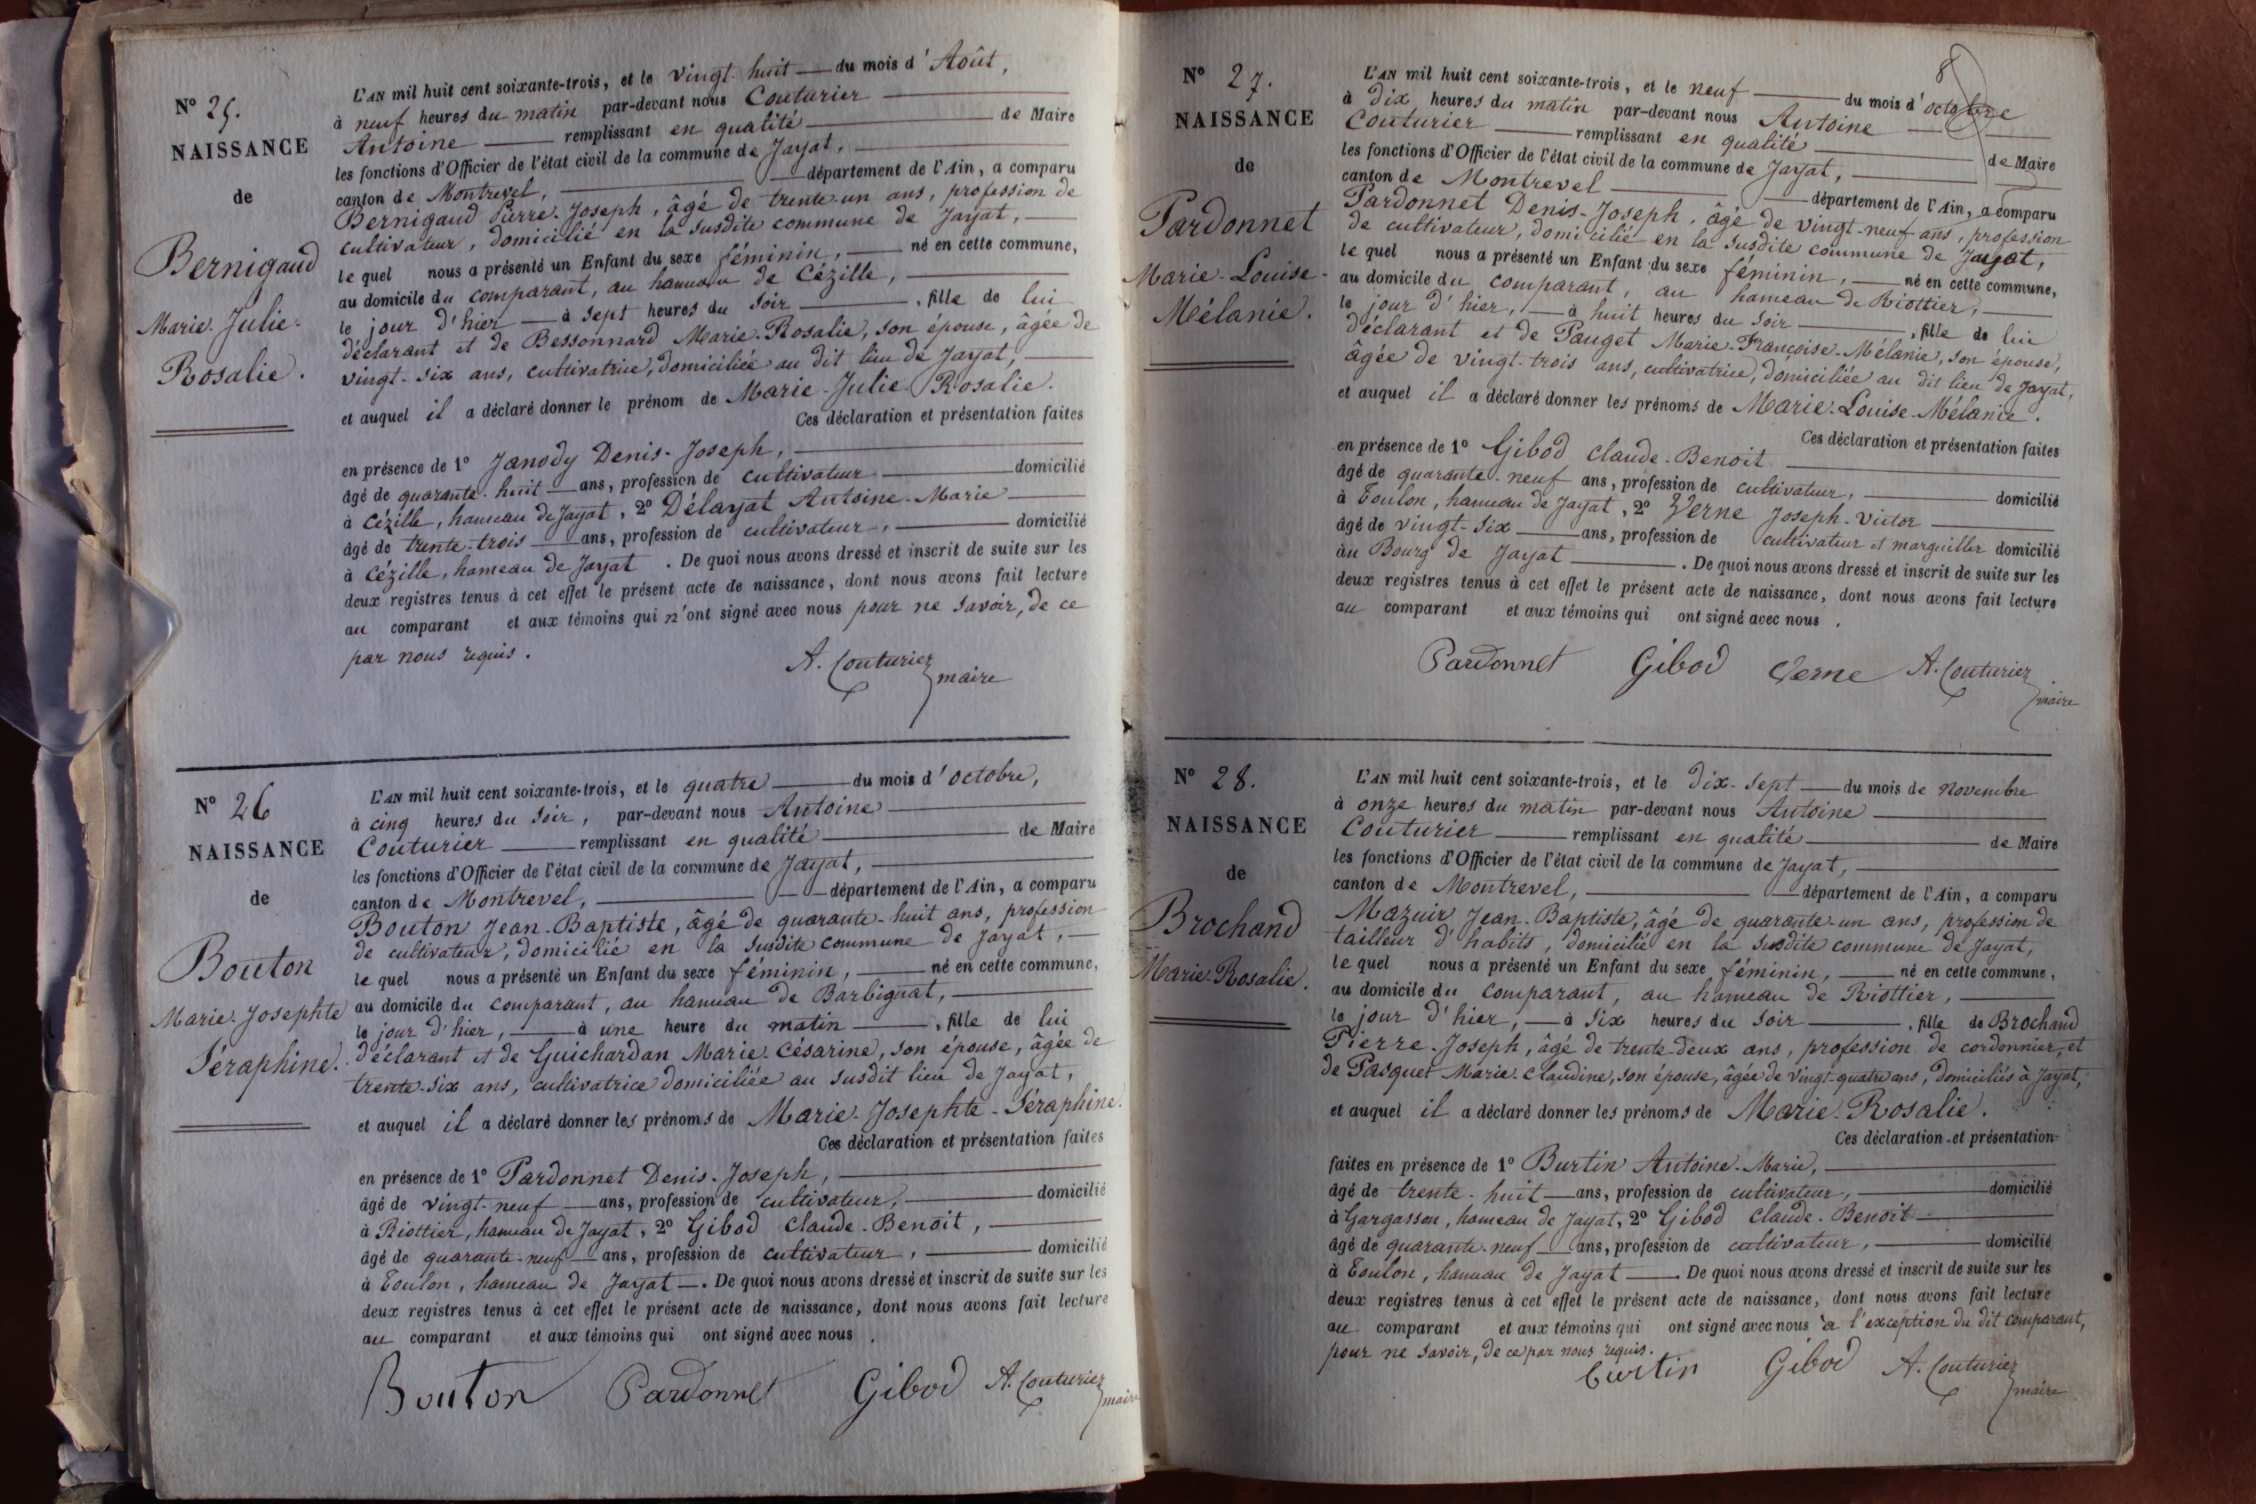 N° 25.
NAISSANCE
de
Bernigaud
Marie-Julie-
Rosalie.
L'AN mil huit cent soixante-trois, et le vingt-huit du mois d'Août,
à neuf heures du matin par-devant nous Couturier
Antoine remplissant en qualité de Maire
les fonctions d'Officier de l'état civil de la commune de Jayat,
canton de Montrevel, département de l'Ain, a comparu
Bernigaud Pierre-Joseph, âgé de trente-un ans, profession de
cultivateur, domicilié en la susdite commune de Jayat,
le quel nous a présenté un Enfant du sexe féminin, né en cette commune,
au domicile du comparant, au hameau de Cézille,
le jour d'hier à sept heures du soir, fille de lui
déclarant et de Bessonnard Marie-Rosalie, son épouse, âgée de
vingt-six ans, cultivatrice, domiciliée au dit lieu de Jayat,
et auquel il a déclaré donner le prénom de Marie-Julie-Rosalie.
Ces déclaration et présentation faites
en présence de 1° Janody Denis-Joseph,
âgé de quarante-huit ans, profession de cultivateur domicilié
à Cézille, hameau de Jayat, 2° Délayat Antoine-Marie
âgé de trente-trois ans, profession de cultivateur, domicilié
à Cézille, hameau de Jayat. De quoi nous avons dressé et inscrit de suite sur les
deux registres tenus à cet effet le présent acte de naissance, dont nous avons fait lecture
au comparant et aux témoins qui n'ont signé avec nous pour ne savoir, de ce
par nous requis.
A. Couturier
maire
N° 26
NAISSANCE
de
Bouton
Marie-Josephte
Séraphine.
L'AN mil huit cent soixante-trois, et le quatre du mois d'octobre,
à cinq heures du soir, par-devant nous Antoine
Couturier remplissant en qualité de Maire
les fonctions d'Officier de l'état civil de la commune de Jayat,
canton de Montrevel, département de l'Ain, a comparu
Bouton Jean-Baptiste, âgé de quarante-huit ans, profession
de cultivateur, domicilié en la susdite commune de Jayat,
le quel nous a présenté un Enfant du sexe féminin, né en cette commune,
au domicile du comparant, au hameau de Barbignat,
le jour d'hier, à une heure du matin, fille de lui
déclarant et de Guichardan Marie-Césarine, son épouse, âgée de
trente-six ans, cultivatrice domiciliée au susdit lieu de Jayat,
et auquel il a déclaré donner les prénoms de Marie-Josephte-Séraphine.
Ces déclaration et présentation faites
en présence de 1° Pardonnet Denis-Joseph,
âgé de vingt-neuf ans, profession de cultivateur, domicilié
à Riottier, hameau de Jayat, 2° Gibod Claude-Benoit,
âgé de quarante-neuf ans, profession de cultivateur, domicilié
à Toulon, hameau de Jayat. De quoi nous avons dressé et inscrit de suite sur les
deux registres tenus à cet effet le présent acte de naissance, dont nous avons fait lecture
au comparant et aux témoins qui ont signé avec nous.
Bouton Pardonnet Gibod A. Couturier
maire
8
N° 27.
NAISSANCE
de
Pardonnet
Marie-Louise-
Mélanie.
L'AN mil huit cent soixante-trois, et le neuf du mois d'octobre
à dix heures du matin par-devant nous Antoine
Couturier remplissant en qualité de Maire
les fonctions d'Officier de l'état civil de la commune de Jayat,
canton de Montrevel département de l'Ain, a comparu
Pardonnet Denis-Joseph, âgé de vingt-neuf ans, profession
de cultivateur, domicilié en la susdite commune de Jayat,
le quel nous a présenté un Enfant du sexe féminin, né en cette commune,
au domicile du comparant, au hameau de Riottier,
le jour d'hier, à huit heures du soir, fille de lui
déclarant et de Pauget Marie-Françoise-Mélanie, son épouse,
âgée de vingt-trois ans, cultivatrice, domiciliée au dit lieu de Jayat,
et auquel il a déclaré donner les prénoms de Marie-Louise-Mélanie.
Ces déclaration et présentation faites
en présence de 1° Gibod Claude-Benoit
âgé de quarante-neuf ans, profession de cultivateur, domicilié
à Toulon, hameau de Jayat, 2° Verne Joseph-Victor
âgé de vingt-six ans, profession de cultivateur et marguiller domicilié
au Bourg de Jayat. De quoi nous avons dressé et inscrit de suite sur les
deux registres tenus à cet effet le présent acte de naissance, dont nous avons fait lecture
au comparant et aux témoins qui ont signé avec nous.
Pardonnet Gibod Verne A. Couturier
maire
N° 28.
NAISSANCE
de
Brochand
Marie-Rosalie.
L'AN mil huit cent soixante-trois, et le dix-sept du mois de novembre
à onze heures du matin par-devant nous Antoine
Couturier remplissant en qualité de Maire
les fonctions d'Officier de l'état civil de la commune de Jayat,
canton de Montrevel, département de l'Ain, a comparu
Mazuir Jean-Baptiste, âgé de quarante-un ans, profession de
tailleur d'habits, domicilié en la susdite commune de Jayat,
le quel nous a présenté un Enfant du sexe féminin, né en cette commune,
au domicile du comparant, au hameau de Riottier,
le jour d'hier, à six heures du soir, fille de Brochand
Pierre-Joseph, âgé de trente-deux ans, profession de cordonnier, et
de Pasquet Marie-Claudine, son épouse, âgée de vingt-quatre ans, domiciliés à Jayat,
et auquel il a déclaré donner les prénoms de Marie-Rosalie.
Ces déclaration et présentation
faites en présence de 1° Burtin Antoine-Marie,
âgé de trente-huit ans, profession de cultivateur, domicilié
à Gargasson, hameau de Jayat, 2° Gibod Claude-Benoit
âgé de quarante-neuf ans, profession de cultivateur, domicilié
à Toulon, hameau de Jayat. De quoi nous avons dressé et inscrit de suite sur les
deux registres tenus à cet effet le présent acte de naissance, dont nous avons fait lecture
au comparant et aux témoins qui ont signé avec nous à l'exception du dit comparant,
pour ne savoir, de ce par nous requis.
Burtin Gibod A. Couturier
maire